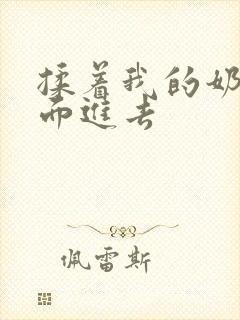 揉着我的奶
而進去
佩雷斯